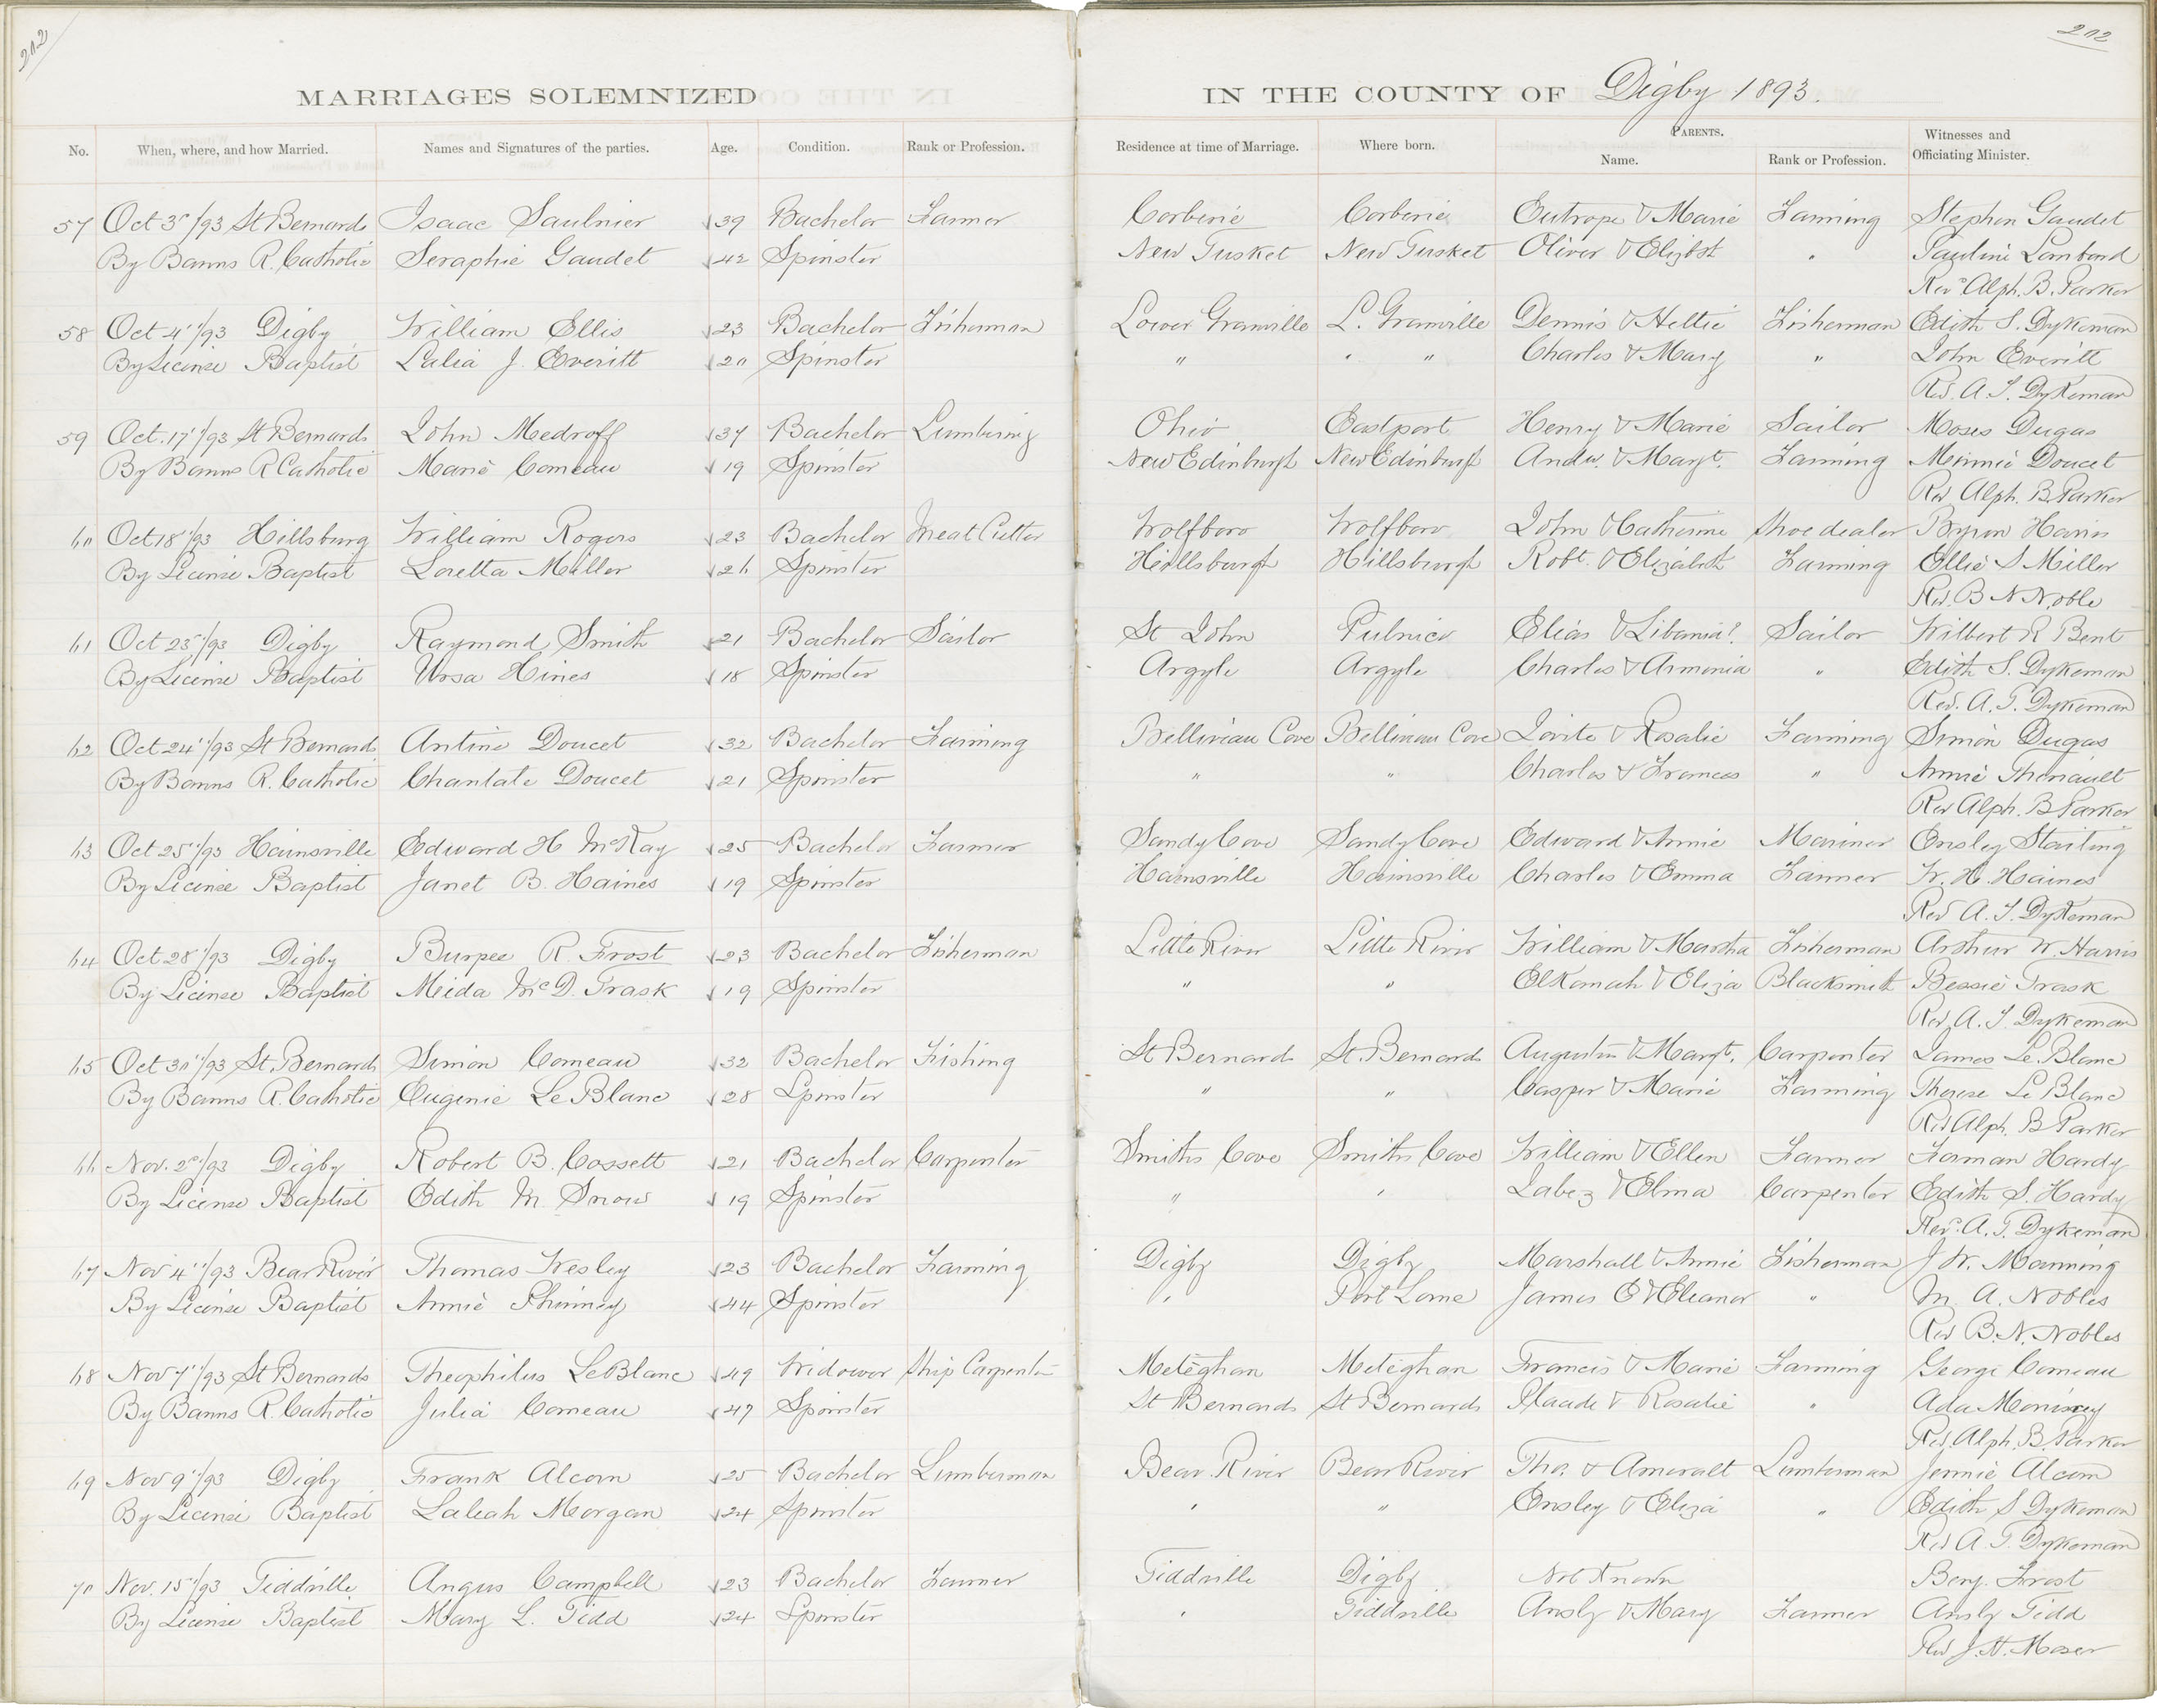 202
202
MARRIAGES SOLEMNIZED
IN THE COUNTY OF Digby 1893.
No. When, where, and how Married. Names and Signatures of the parties. Age. Condition. Rank or Profession. Residence at time of Marriage. Where born. PARENTS. Name. Rank or Profession. Witnesses and Officiating Minister.
57 Oct 3"/93 St Bernards Isaac Saulnier 39 Bachelor Farmer Corberie Corberie Eutrope & Marie Farming Stephen Gaudet
By Banns R. Catholic Seraphie Gaudet 42 Spinster New Tusket New Tusket Oliver & Elizbt " Pauline Lombard
Rev Alph. B. Parker
58 Oct 4"/93 Digby William Ellis 23 Bachelor Fisherman Lower Granville L. Granville Dennis & Hettie Fisherman Edith S. Dykeman
By License Baptist Lalia J. Everitt 20 Spinster " " " Charles & Mary " John Everitt
Rev. A. T. Dykeman
59 Oct. 17"/93 St Bernards John Medroff 37 Bachelor Lumbering Ohio Eastport Henry & Marie Sailor Moses Dugas
By Banns R Catholic Marie Comeau 19 Spinster New Edinburgh New Edinburgh Andw. & Margt. Farming Minnie Doucet
Rev Alph. B Parker
60 Oct 18"/93 Hillsburg William Rogers 23 Bachelor Meat Cutter Wolfboro Wolfboro John & Catherine Shoe dealer Byron Harris
By License Baptist Loretta Miller 26 Spinster Hillsburgh Hillsburgh Robt. & Elizabeth Farming Ellie S Miller
Rev. B N Noble
61 Oct 23"/93 Digby Raymond Smith 21 Bachelor Sailor St John Pulnico Elias & Libania? Sailor Wilbert R Bent
By License Baptist Ursa Hines 18 Spinster Argyle Argyle Charles & Armenia " Edith S. Dykeman
Rev. A. T. Dykeman
62 Oct 24"/93 St Bernards Antine Doucet 32 Bachelor Farming Belliveau Cove Belliveau Cove Lovite & Rosalie Farming Simon Dugas
By Banns R. Catholic Chantale Doucet 21 Spinster " " Charles & Frances " Annie Theriault
Rev Alph. B Parker
63 Oct 25"/93 Hainsville Edward H McKay 25 Bachelor Farmer Sandy Cove Sandy Cove Edward & Annie Mariner Onsley Starling
By License Baptist Janet B. Haines 19 Spinster Hainsville Hainsville Charles & Emma Farmer W. H. Haines
Rev A. T. Dykeman
64 Oct 28"/93 Digby Burpee R. Frost 23 Bachelor Fisherman Little River Little River William & Martha Fisherman Arthur W. Harris
By License Baptist Meida McD. Trask 19 Spinster " " Elkanah & Eliza Blacksmith Bessie Trask
Rev. A. T. Dykeman
65 Oct 30"/93 St. Bernards Simon Comeau 32 Bachelor Fishing St Bernards St. Bernards Augustin & Margt. Carpenter James Le Blanc
By Banns R. Catholic Eugenie Le Blanc 28 Spinster " " Casper & Marie Farming Therese Le Blanc
Rev Alph. B Parker
66 Nov. 2"/93 Digby Robert B. Cossett 21 Bachelor Carpenter Smiths Cove Smiths Cove William & Ellen Farmer Forman Hardy
By License Baptist Edith M. Snow 19 Spinster " " Jabez & Elma Carpenter Edith S. Hardy
Rev. A. T. Dykeman
67 Nov 4"/93 Bear River Thomas Wesley 23 Bachelor Farming Digby Digby Marshall & Annie Fisherman J W. Manning
By License Baptist Annie Phinney 44 Spinster " Port Lorne James E & Eleanor " M A. Nobles
Rev B. N. Nobles
68 Nov 7"/93 St Bernards Theophilus LeBlanc 49 Widower Ship Carpenter Meteghan Meteghan Francis & Marie Farming George Comeau
By Banns R. Catholic Julia Comeau 47 Spinster St Bernards St Bernards Placide & Rosalie " Ada
Rev. Alph. B. Parker
69 Nov 9"/93 Digby Frank Alcorn 25 Bachelor Lumberman Bear River Bear River Thos. & Lumberman Jennie Alcorn
By License Baptist Laleah Morgan 24 Spinster " " Onsley & Eliza " Edith S Dykeman
Rev A. T. Dykeman
70 Nov. 15"/93 Tiddville Angus Campbell 23 Bachelor Farmer Tiddville Digby Not Known Benj. Frost
By License Baptist Mary L. Tidd 24 Spinster " Tiddville Ansly & Mary Farmer Ansly Tidd
Rev J. H. Moser